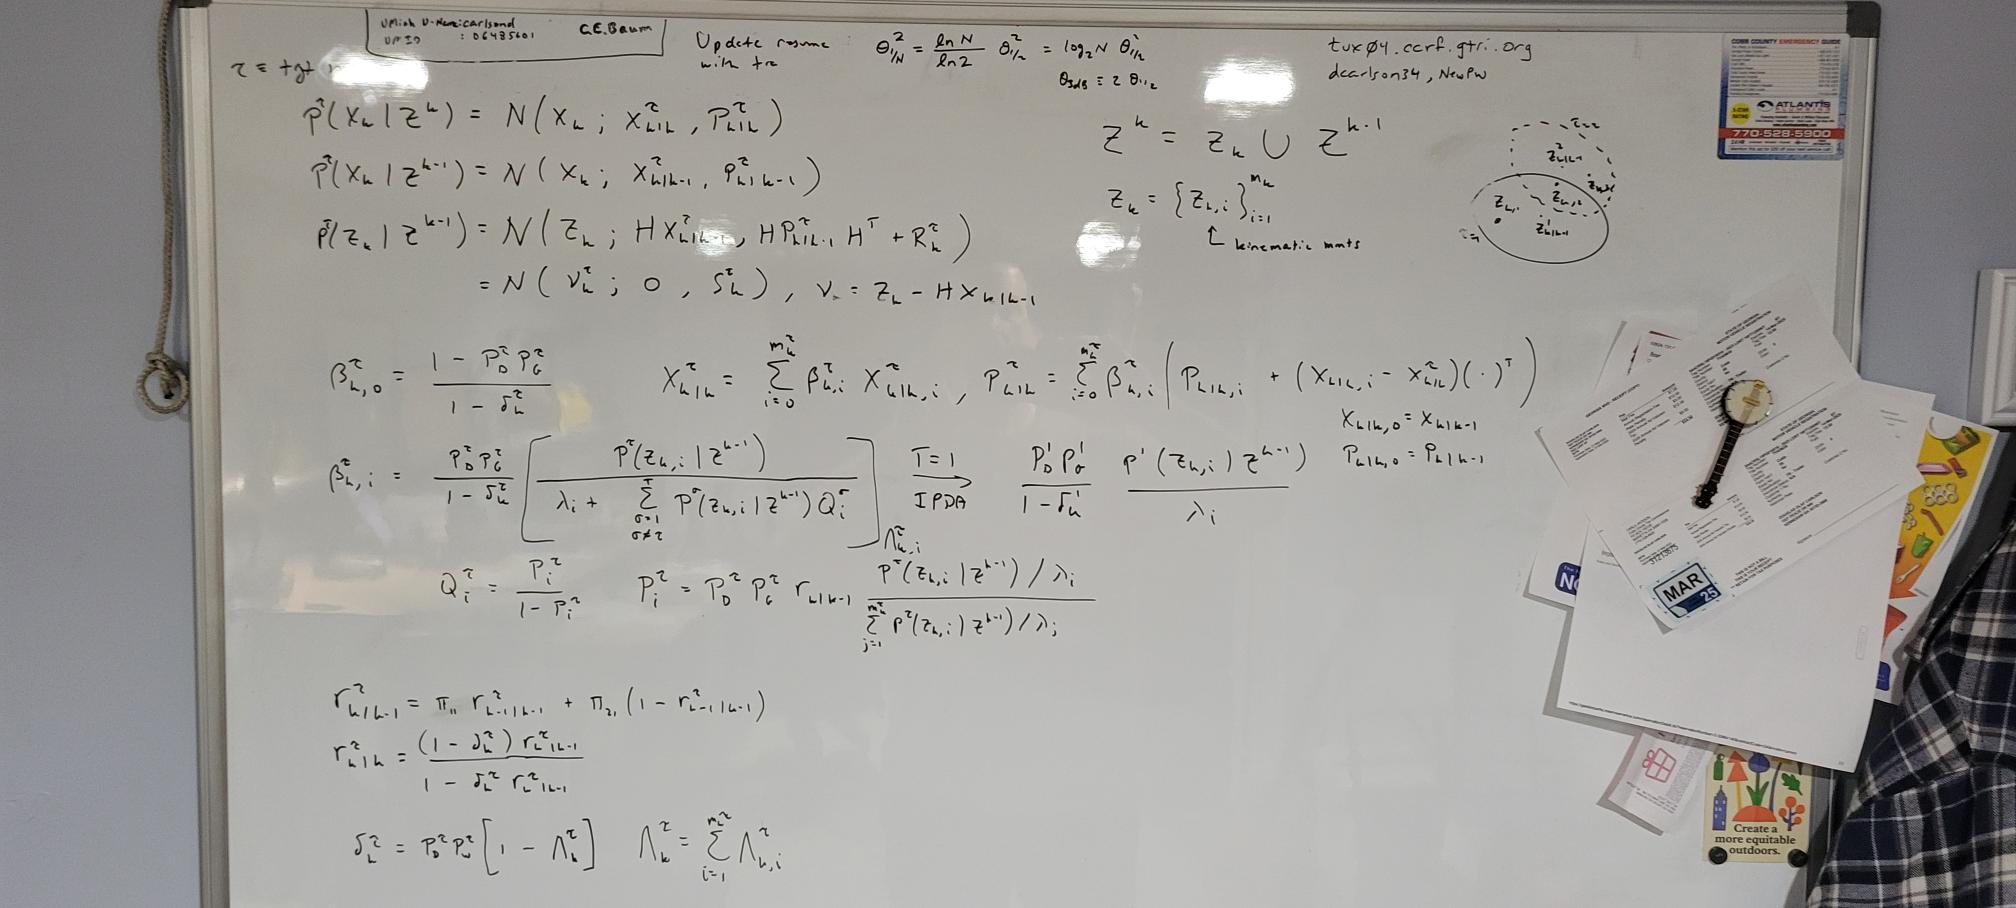 UMich U-Name: carlsond
UMID : 06485601
C.E.Baum
Update resume
with tre
θ²_{1/N} = \frac{ln N}{ln 2} θ²_{1/2} = log₂N θ²_{1/2}
θ_{3dB} = 2 θ_{1/2}
tux04.ccrf.gtri.org
dcarlson34, NewPW
τ = tgt
p^τ(x_k | Z^k) = N(x_k ; x^τ_{k|k}, P^τ_{k|k})
p^τ(x_k | Z^{k-1}) = N(x_k ; x^τ_{k|k-1}, P^τ_{k|k-1})
p^τ(z_k | Z^{k-1}) = N(z_k ; H x^τ_{k|k-1}, H P^τ_{k|k-1} H^T + R^τ_k)
= N(ν^τ_k ; 0, S^τ_k), ν = z_k - H x_{k|k-1}
Z^k = Z_k ∪ Z^{k-1}
Z_k = {z_{k,i}}_{i=1}^{m_k}
↑ kinematic mmts
τ=2
z²_{k|k-1}
z_{k,1}
z_{k,2}
z_{k,3}
z¹_{k|k-1}
τ=1
β^τ_{k,0} = \frac{1 - P_D^τ P_G^τ}{1 - δ_k^τ}
x^τ_{k|k} = Σ_{i=0}^{m_k^τ} β^τ_{k,i} x^τ_{k|k,i}, P^τ_{k|k} = Σ_{i=0}^{m_k^τ} β^τ_{k,i} (P_{k|k,i} + (x_{k|k,i} - x^τ_{k|k})(·)^T)
x_{k|k,0} = x_{k|k-1}
P_{k|k,0} = P_{k|k-1}
β^τ_{k,i} = \frac{P_D^τ P_G^τ}{1 - δ_k^τ} [\frac{p^τ(z_{k,i} | Z^{k-1})}{λ_i + Σ_{σ=1, σ≠τ}^{T} p^σ(z_{k,i} | Z^{k-1}) Q_i^σ}] \xrightarrow[IPDA]{T=1} \frac{P_D^1 P_G^1}{1 - δ_k^1} \frac{p^1(z_{k,i} | Z^{k-1})}{λ_i}
Λ^τ_{k,i}
Q_i^τ = \frac{P_i^τ}{1 - P_i^τ} P_i^τ = P_D^τ P_G^τ r_{k|k-1} \frac{p^τ(z_{k,i} | Z^{k-1}) / λ_i}{Σ_{j=1}^{m_k^τ} p^τ(z_{k,i} | Z^{k-1}) / λ_j}
r^τ_{k|k-1} = π_{11} r^τ_{k-1|k-1} + π_{21} (1 - r^τ_{k-1|k-1})
r^τ_{k|k} = \frac{(1 - δ_k^τ) r^τ_{k|k-1}}{1 - δ_k^τ r^τ_{k|k-1}}
δ_k^τ = P_D^τ P_G^τ [1 - Λ_k^τ] Λ_k^τ = Σ_{i=1}^{m_k^τ} Λ^τ_{k,i}
COBB COUNTY EMERGENCY GUIDE
ATLANTIS
PLUMBING
770-528-5900
MAR
25
Create a
more equitable
outdoors.